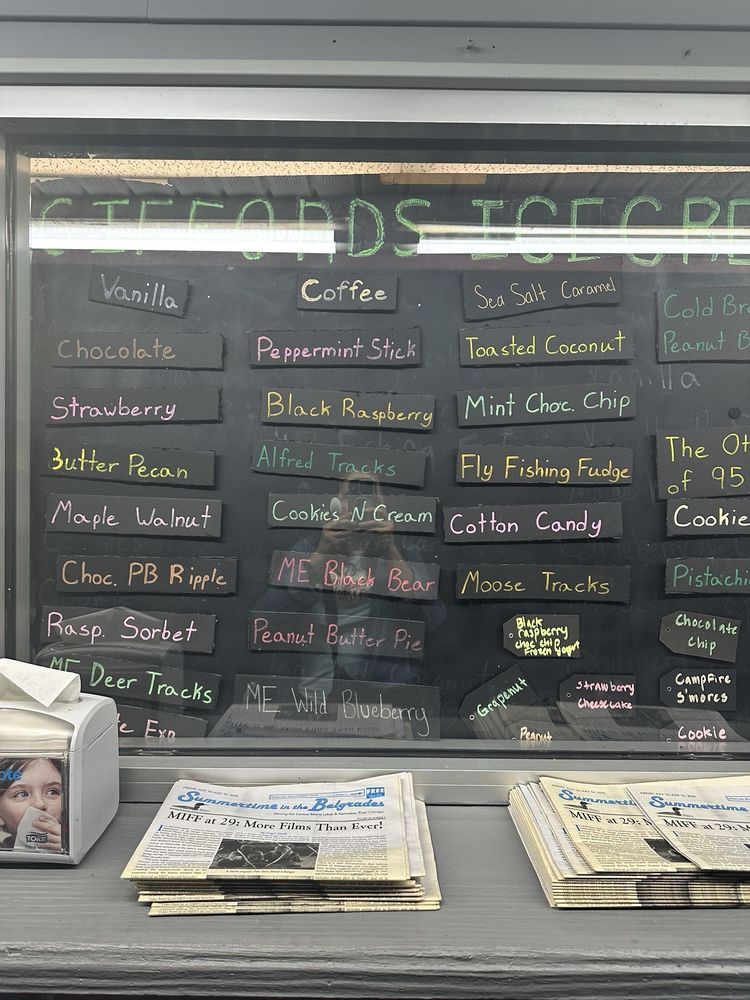 GIFFORDS ICE CRE
Vanilla
Chocolate
Strawberry
Butter Pecan
Maple Walnut
Choc. PB Ripple
Rasp. Sorbet
ME Deer Tracks
Coffee
Peppermint Stick
Black Raspberry
Alfred Tracks
Cookies N Cream
ME Black Bear
Peanut Butter Pie
ME Wild Blueberry
Sea Salt Caramel
Toasted Coconut
Mint Choc. Chip
Fly Fishing Fudge
Cotton Candy
Moose Tracks
Black
raspberry
choc chip
Frozen Yogurt
Grapenut
Strawberry
Cheesecake
Peanut
Cold Br
Peanut B
Vanilla
The Ot
of 95
Cookie
Pistachi
Chocolate
Chip
Campfire
S'mores
Cookie
TORK
FREE
Summertime in the Belgrades
MIFF at 29: More Films Than Ever!
Summertime
MIFF at 29:
Summertime
MIFF at 29: M